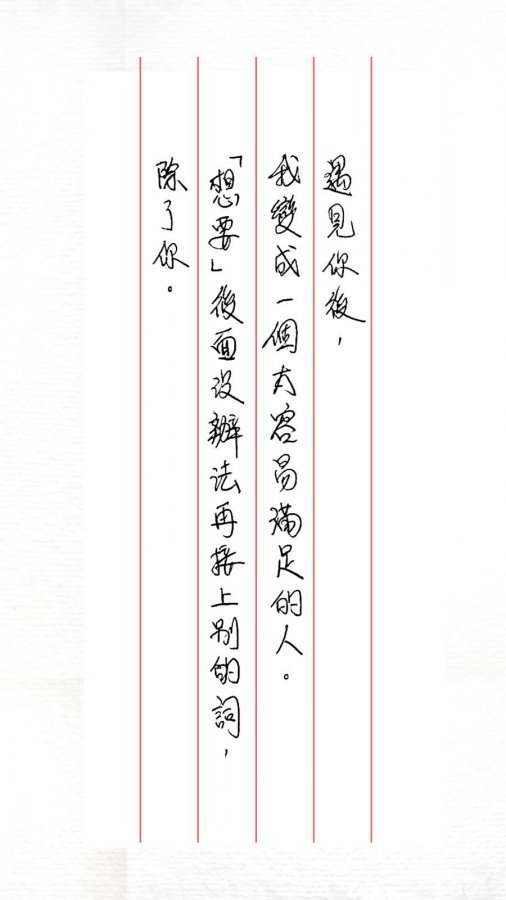 遇見你後，
我變成一個太容易滿足的人。
「想要」後面沒辦法再接上別的詞，
除了你。